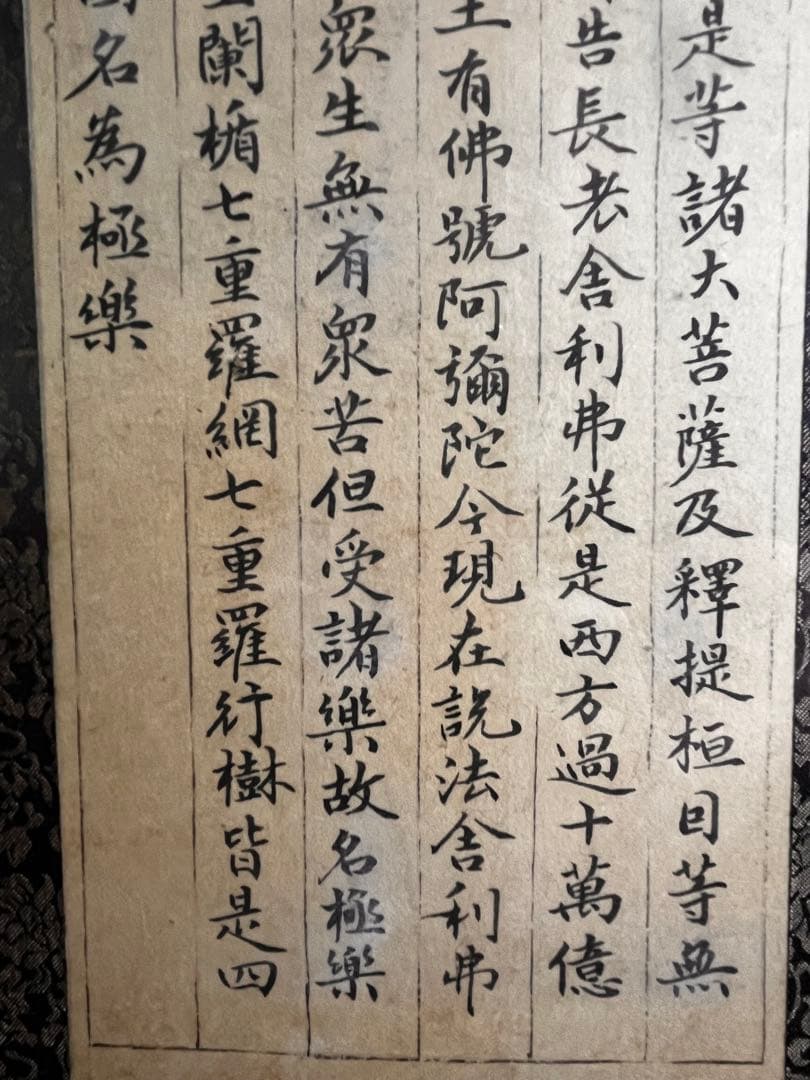 是等諸大菩薩及釋提桓因等無
告長老舍利弗從是西方過十萬億
土有佛號阿彌陀今現在説法舍利弗
眾生無有眾苦但受諸樂故名極樂
闌楯七重羅網七重羅行樹皆是四
名為極樂